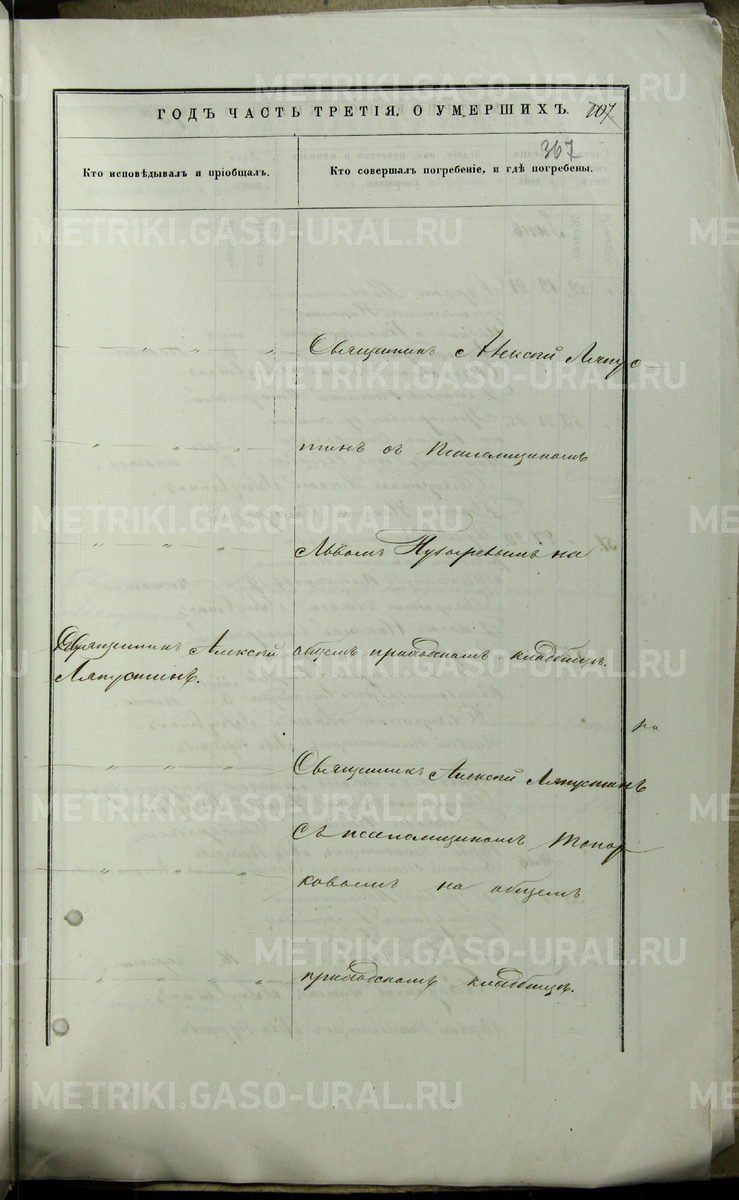 ГОДЪ ЧАСТЬ ТРЕТІЯ, О УМЕРШИХЪ. 107
367
Кто исповѣдывалъ и пріобщалъ.
Кто совершалъ погребеніе, и гдѣ погребены.
Священникъ Алексій Ляпус-
тинъ съ Псаломщикомъ
Львомъ на
общемъ приходскомъ кладбищѣ.
Священникъ Алексій
Ляпустинъ.
Священникъ Алексій Ляпустинъ
Съ псаломщикомъ Топор-
ковымъ на общемъ
приходскомъ кладбищѣ.
METRIKI.GASO-URAL.RU